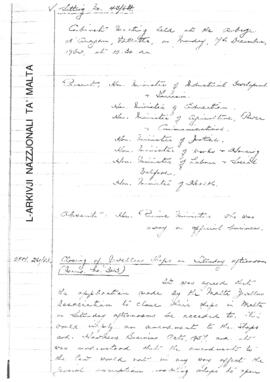 Sitting No. 40/64
Cabinet Meeting held at the Auberge
d'Aragon, Valletta, on Monday, 7th December,
at 10.30 a.m.
Present: Hon. Minister of Industrial Development
& Tourism
Hon. Minister of Education.
Hon. Minister of Agriculture, Power
& Communications
Hon. Minister of Justice.
Hon. Minister of Works & Housing
Hon. Minister of Labour & Social
Welfare.
Hon. Minister of Health.
Absent: Hon. Prime Minister who was
away on official business.
L-ARKIVJI NAZZJONALI TA' MALTA
Closing of Jewellers Shops on Saturday afternoon
It was agreed that
the application made by the Malta
Association to close their shops in Malta
on Saturday afternoons be acceded to. This
would imply an amendment to the Shops
and Business Act, and it
was understood that the amendment to
the law would not in any way affect the
shops to open